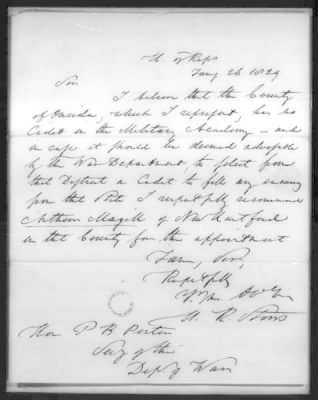 H. of Reps
Jany 26 1829
Sir
I believe that the County
of Oneida, which I represent, has no
Cadet in the Military Academy - and
in case it should be deemed adviseable
by the War Department to select from
that District a Cadet to fill any vacancy
from the State I respectfully recommend
Arthur Magill of New Hartford
in the County for the appointment
I am, Sir,
Respectfully
Yr
H. R. Storrs
Hon P B Porter
Secy of the
Dept of War